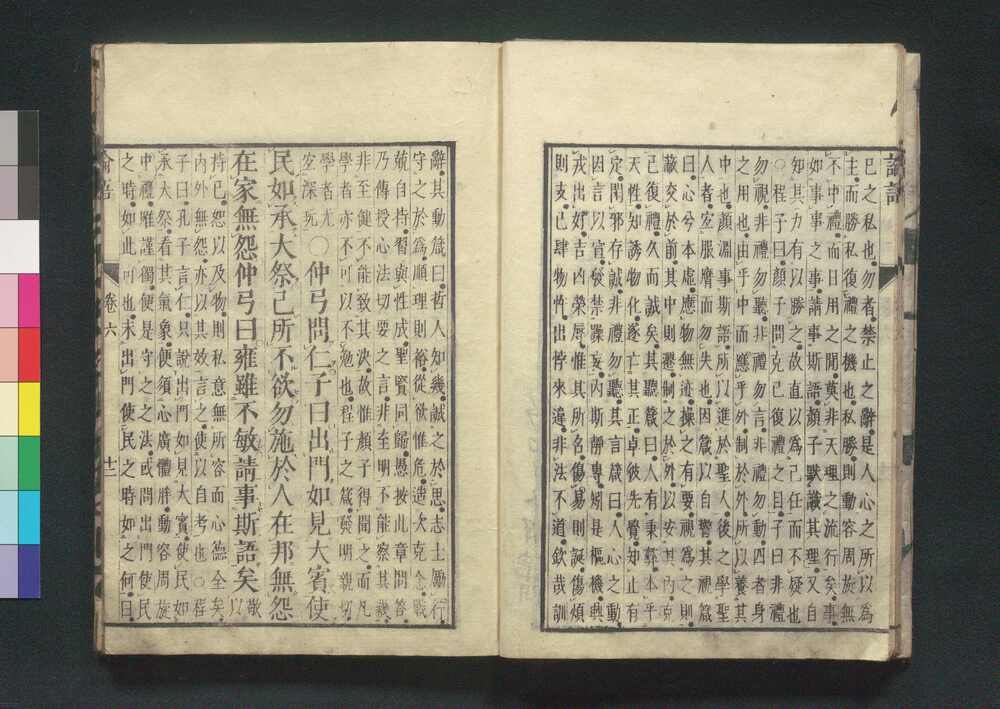 論語
己之私也勿者禁止之辭是人心之所以為
主而勝私復禮之機也私勝則動容周旋無
不中禮而日用之間莫非天理之流行矣事
如事事之事請事斯語顏子默識其理又自
知其力有以勝之故直以為己任而不疑也
○程子曰顏子問克己復禮之目子曰非禮
勿視非禮勿聽非禮勿言非禮勿動四者身
之用也由乎中而應乎外制於外所以養其
中也顏淵事斯語所以進於聖人後之學聖
人者宜服膺而勿失也因箴以自警其視箴
曰心兮本虛應物無迹操之有要視為之則
蔽交於前其中則遷制之於外以安其內克
己復禮久而誠矣其聽箴曰人有秉彝本乎
天性知誘物化遂亡其正卓彼先覺知止有
定閑邪存誠非禮勿聽其言箴曰人心之動
因言以宣發禁躁妄內斯靜專矧是樞機興
戎出好吉凶榮辱惟其所召傷易則誕傷煩
則支己肆物忤出悖來違非法不道欽哉訓
辭其動箴曰哲人知幾誠之於思志士勵行
守之於為順理則裕從欲惟危造次克念戰
兢自持習與性成聖賢同歸愚按此章問答
乃傳授心法切要之言非至明不能察其幾
非至健不能致其決故惟顏子得聞之而凡
學者亦不可以不勉也程子之箴發明親切
學者尤宜深玩○仲弓問仁子曰出門如見大賓使
民如承大祭己所不欲勿施於人在邦無怨
在家無怨仲弓曰雍雖不敏請事斯語矣敬以
持己恕以及物則私意無所容而心德全矣
內外無怨亦以其效言之使以自考也○程
子曰孔子言仁只說出門如見大賓使民如
承大祭看其氣象便須心廣體胖動容周旋
中禮唯謹獨便是守之之法或問出門使民
之時如此可也未出門使民之時如之何曰
論語 卷六 十二